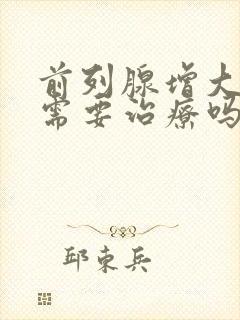 前列腺增大
需要治疗吗
邱束兵